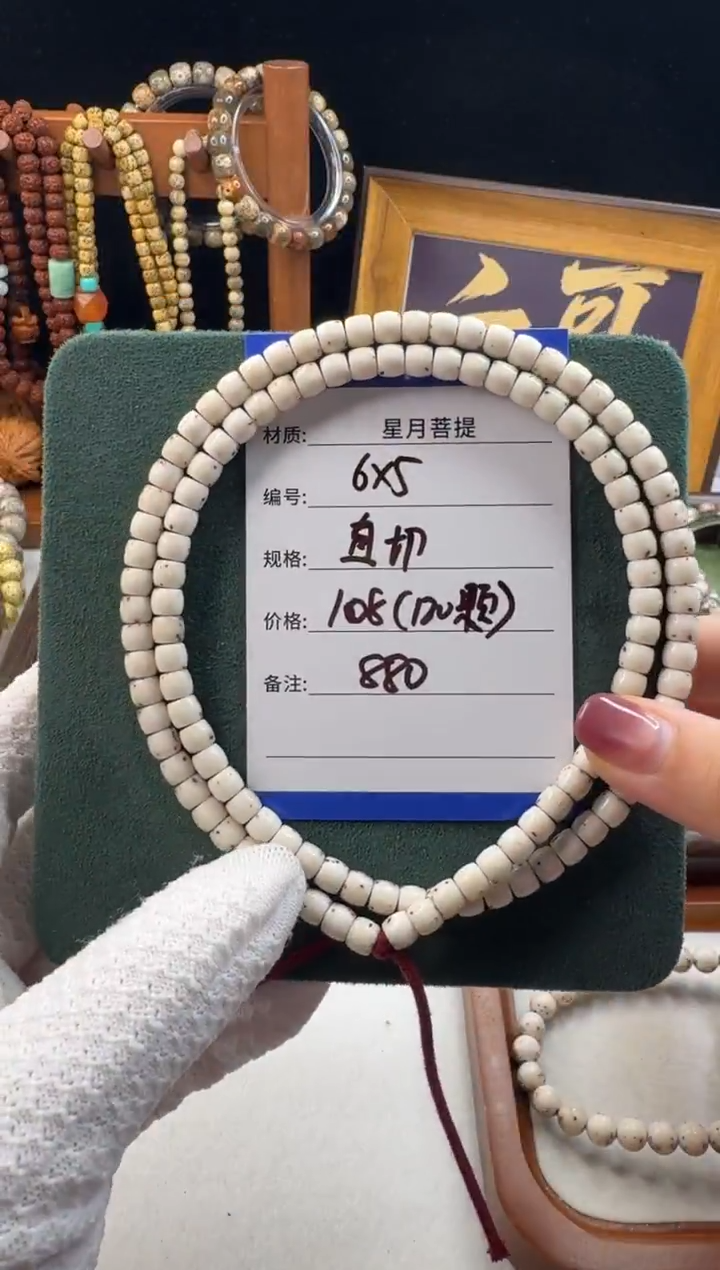 材质: 星月菩提
编号: 6X5
规格: 直切
价格: 108(120颗)
备注: 880